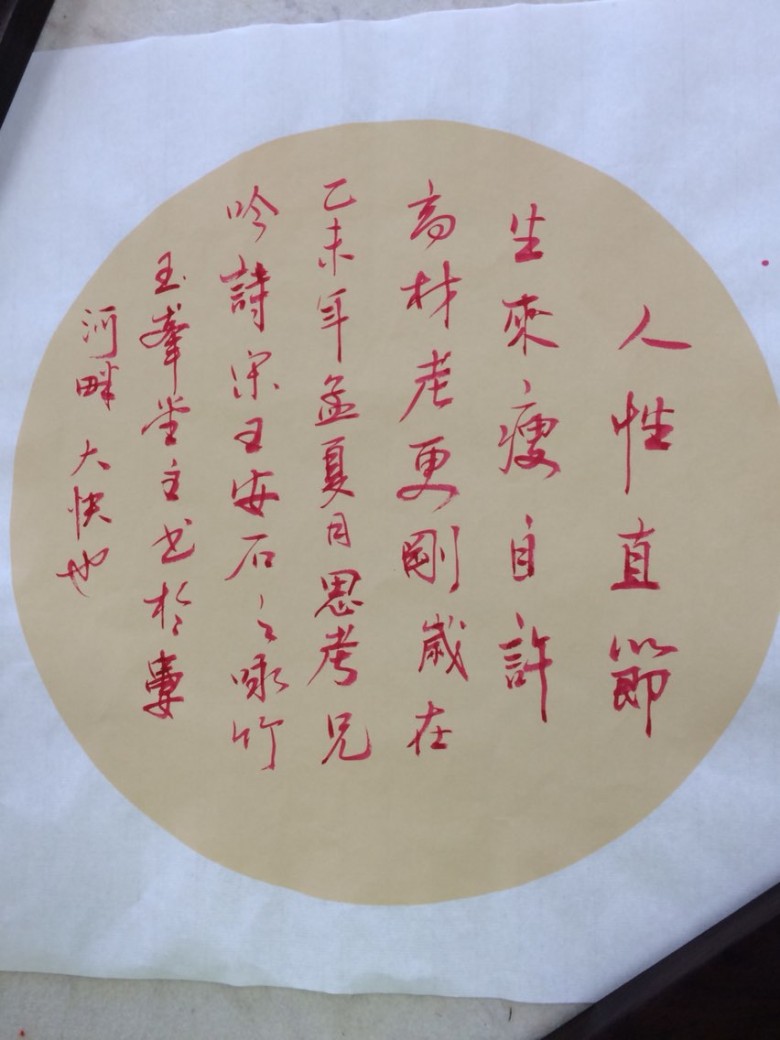 人性直節
生來瘦自許
高材老更剛歲在
乙未年孟夏月思考兄
吟詩宋王安石之咏竹
玉峯堂主书於婁
河畔大快也